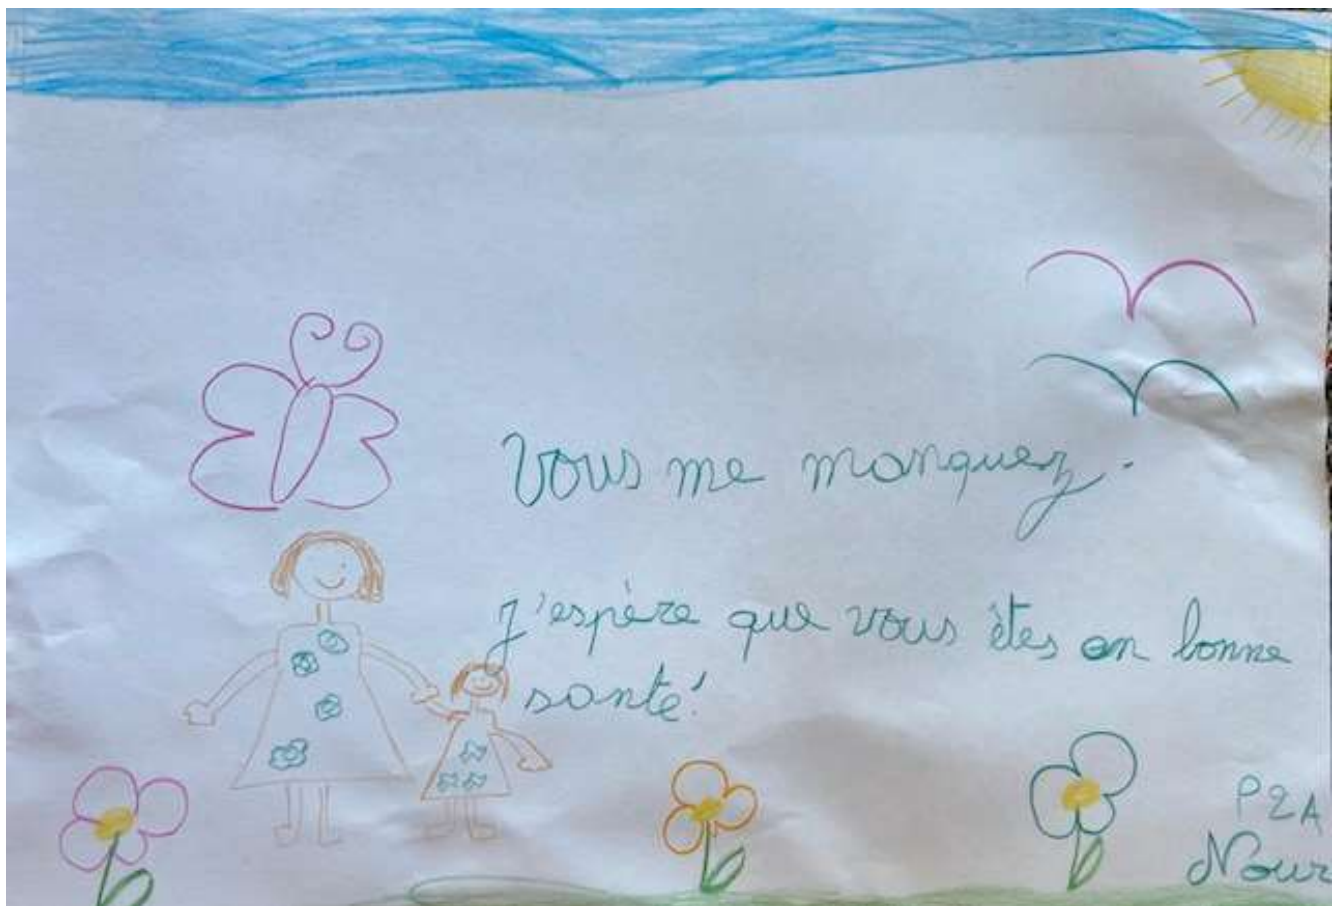 Vous me manquez.
J'espère que vous êtes en bonne
santé!
P2A
Nour